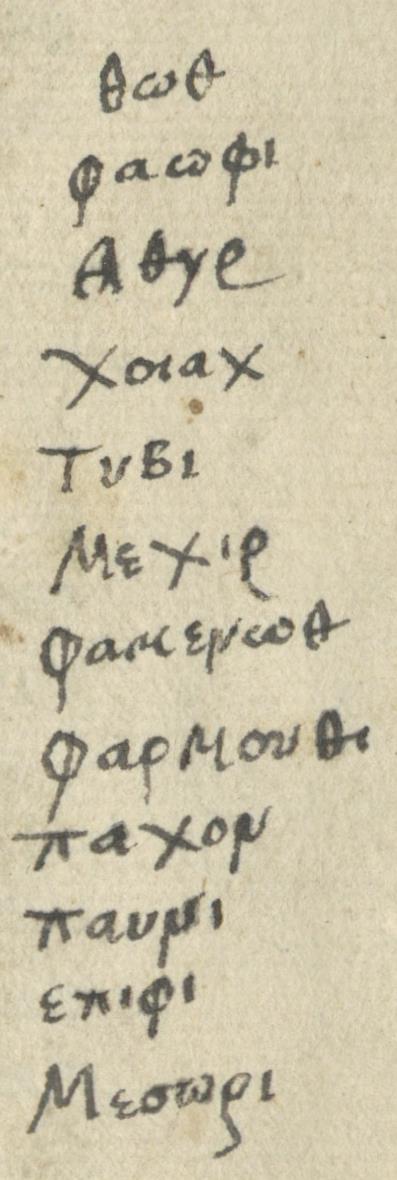 θωθ
φαωφι
Αθυρ
χοιαχ
Τυβι
Μεχιρ
φαμενωθ
φαρμουθι
παχον
παυνι
επιφι
Μεσωρι